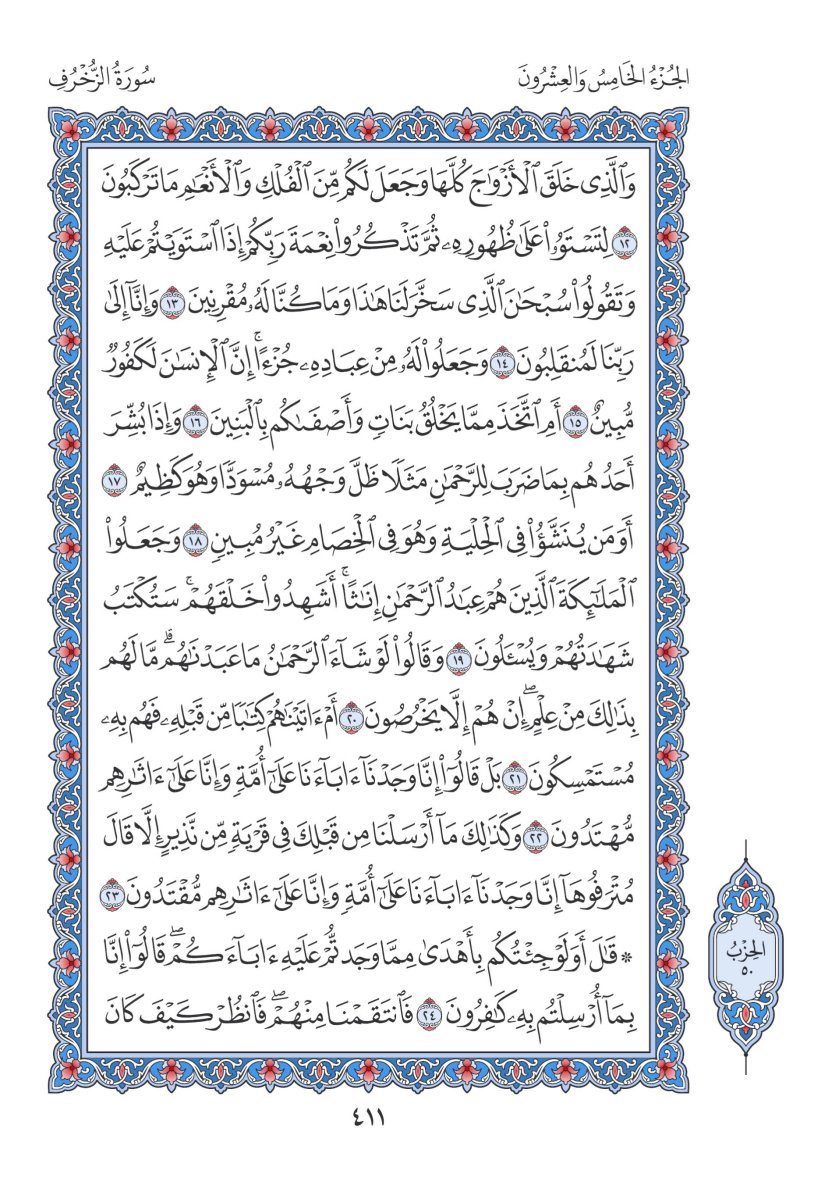 الجُزْءُ الخَامِسُ وَالعِشْرُونَ
سُورَةُ الزُّخْرُفِ
وَٱلَّذِى خَلَقَ ٱلْأَزْوَٰجَ كُلَّهَا وَجَعَلَ لَكُم مِّنَ ٱلْفُلْكِ وَٱلْأَنْعَٰمِ مَا تَرْكَبُونَ
١٢ لِتَسْتَوُۥا۟ عَلَىٰ ظُهُورِهِۦ ثُمَّ تَذْكُرُوا۟ نِعْمَةَ رَبِّكُمْ إِذَا ٱسْتَوَيْتُمْ عَلَيْهِ
وَتَقُولُوا۟ سُبْحَٰنَ ٱلَّذِى سَخَّرَ لَنَا هَٰذَا وَمَا كُنَّا لَهُۥ مُقْرِنِينَ ١٣ وَإِنَّآ إِلَىٰ
رَبِّنَا لَمُنقَلِبُونَ ١٤ وَجَعَلُوا۟ لَهُۥ مِنْ عِبَادِهِۦ جُزْءًا ۚ إِنَّ ٱلْإِنسَٰنَ لَكَفُورٌ
مُّبِينٌ ١٥ أَمِ ٱتَّخَذَ مِمَّا يَخْلُقُ بَنَاتٍ وَأَصْفَىٰكُم بِٱلْبَنِينَ ١٦ وَإِذَا بُشِّرَ
أَحَدُهُم بِمَا ضَرَبَ لِلرَّحْمَٰنِ مَثَلًا ظَلَّ وَجْهُهُۥ مُسْوَدًّا وَهُوَ كَظِيمٌ ١٧
أَوَمَن يُنَشَّؤُا۟ فِى ٱلْحِلْيَةِ وَهُوَ فِى ٱلْخِصَامِ غَيْرُ مُبِينٍ ١٨ وَجَعَلُوا۟
ٱلْمَلَٰٓئِكَةَ ٱلَّذِينَ هُمْ عِبَٰدُ ٱلرَّحْمَٰنِ إِنَٰثًا ۚ أَشَهِدُوا۟ خَلْقَهُمْ ۚ سَتُكْتَبُ
شَهَٰدَتُهُمْ وَيُسْـَٔلُونَ ١٩ وَقَالُوا۟ لَوْ شَآءَ ٱلرَّحْمَٰنُ مَا عَبَدْنَٰهُم ۗ مَّا لَهُم
بِذَٰلِكَ مِنْ عِلْمٍ ۖ إِنْ هُمْ إِلَّا يَخْرُصُونَ ٢٠ أَمْ ءَاتَيْنَٰهُمْ كِتَٰبًا مِّن قَبْلِهِۦ فَهُم بِهِۦ
مُسْتَمْسِكُونَ ٢١ بَلْ قَالُوٓا۟ إِنَّا وَجَدْنَآ ءَابَآءَنَا عَلَىٰٓ أُمَّةٍ وَإِنَّا عَلَىٰٓ ءَاثَٰرِهِم
مُّهْتَدُونَ ٢٢ وَكَذَٰلِكَ مَآ أَرْسَلْنَا مِن قَبْلِكَ فِى قَرْيَةٍ مِّن نَّذِيرٍ إِلَّا قَالَ
مُتْرَفُوهَآ إِنَّا وَجَدْنَآ ءَابَآءَنَا عَلَىٰٓ أُمَّةٍ وَإِنَّا عَلَىٰٓ ءَاثَٰرِهِم مُّقْتَدُونَ ٢٣
* قَٰلَ أَوَلَوْ جِئْتُكُم بِأَهْدَىٰ مِمَّا وَجَدتُّمْ عَلَيْهِ ءَابَآءَكُمْ ۖ قَالُوٓا۟ إِنَّا
بِمَآ أُرْسِلْتُم بِهِۦ كَٰفِرُونَ ٢٤ فَٱنتَقَمْنَا مِنْهُمْ ۖ فَٱنظُرْ كَيْفَ كَانَ
الحِزْبُ
٥٠
٤١١